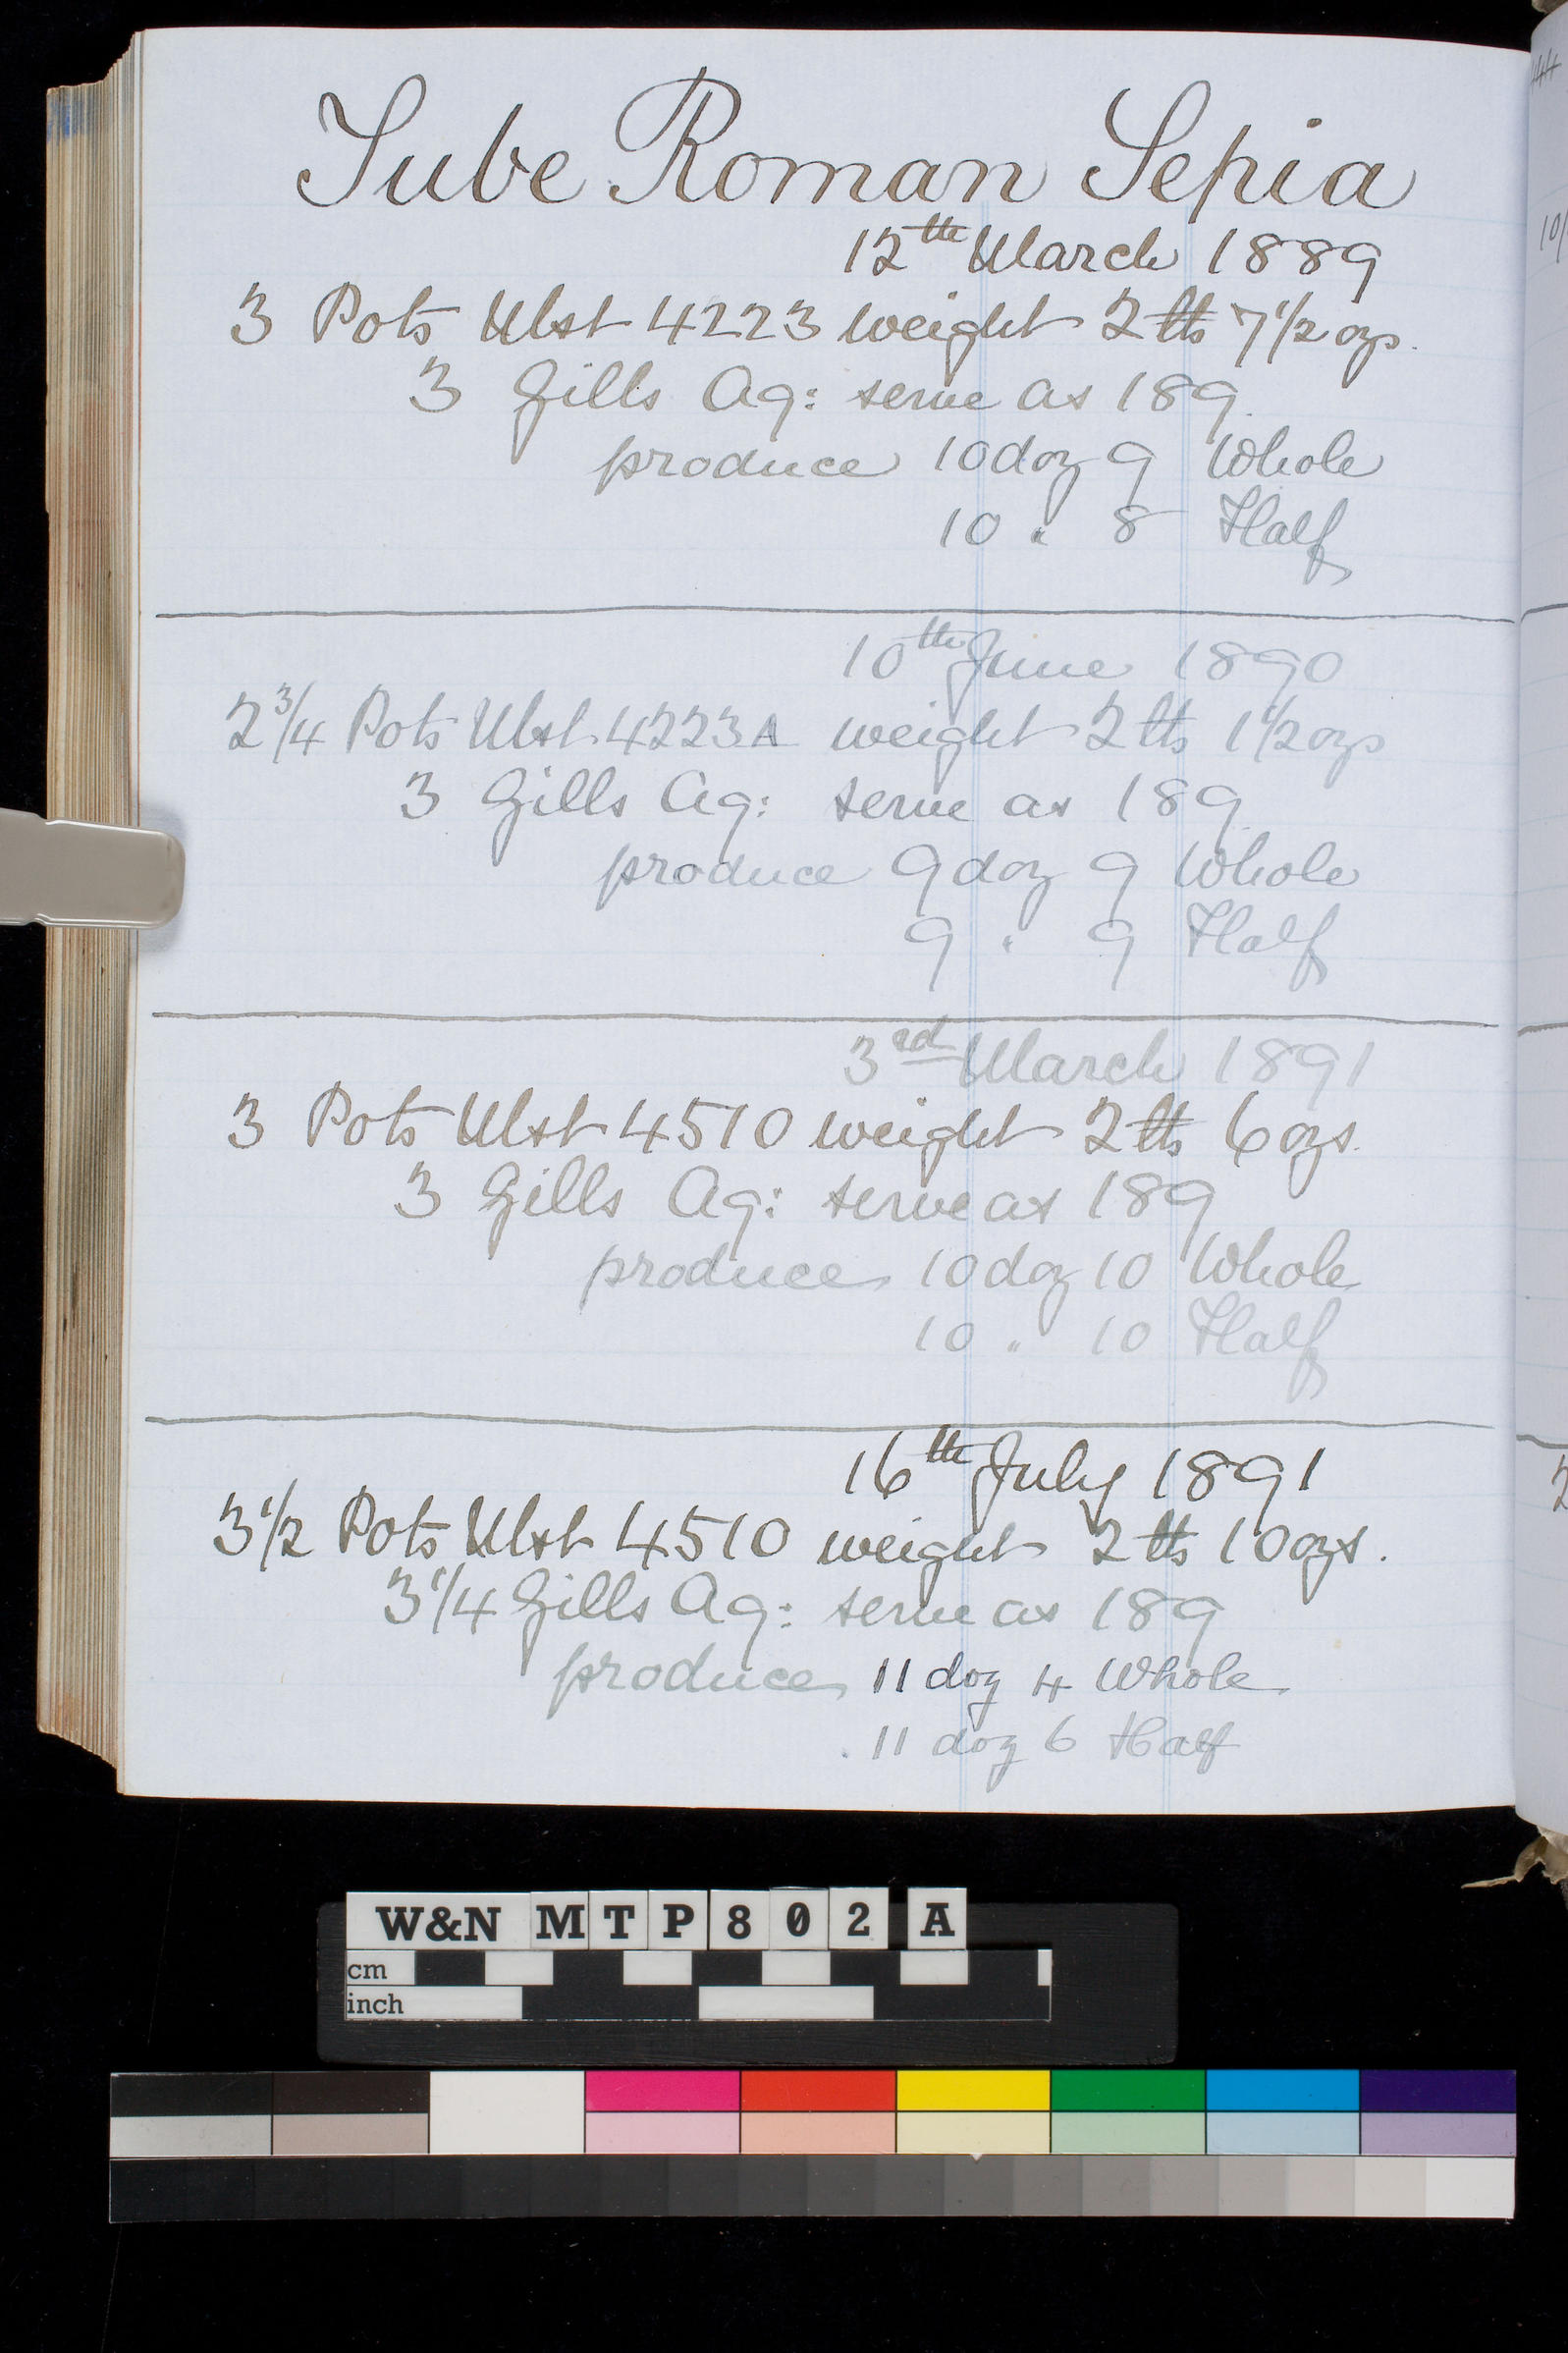 Tube Roman Sepia
12th March 1889
3 Pots Ulst 4223 weight 2 lbs 7 1/2 ozs.
3 Gills Aq: serve as 189.
produce 10 doz 9 Whole
10 " 8 Half
10th June 1890
2 3/4 Pots Ulst 4223A weight 2 lbs 1 1/2 ozs
3 Gills Aq: serve as 189.
produce 9 doz 9 Whole
9 " 9 Half
3rd March 1891
3 Pots Ulst 4510 weight 2 lbs 6 ozs.
3 Gills Aq: serve as 189
produce 10 doz 10 Whole
10 " 10 Half
16th July 1891
3 1/2 Pots Ulst 4510 weight 2 lbs 10 ozs.
3 1/4 Gills Aq: serve as 189
produce 11 doz 4 Whole
11 doz 6 Half
W&N MTP802 A
cm
inch